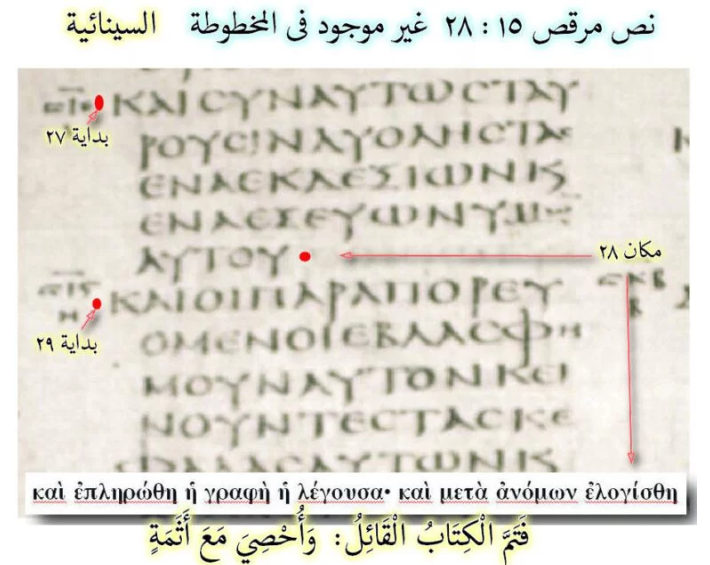 نص مرقص ١٥ : ٢٨ غير موجود فى المخطوطة السينائية
ΚΑΙϹΥΝΑΥΤΩϹΤΑΥ
بداية ٢٧
ΡΟΥϹΙΝΑΥΟΛΗϹΤΑϹ
ΕΝΑΕΚΔΕΞΙΩΝΚ
ΕΝΑΕΞΕΥΩΝΥΜΩ
ΑΥΤΟΥ
مكان ٢٨
ΚΑΙΟΙΠΑΡΑΠΟΡΕΥ
Η
بداية ٢٩
ΟΜΕΝΟΙΕΒΛΑϹΦΗ
ΜΟΥΝΑΥΤΟΝΚΕΙ
ΝΟΥΝΤΕϹΤΑϹΚΕ
ΦΑΛΑϹΑΥΤΩΝΚ
καὶ ἐπληρώθη ἡ γραφὴ ἡ λέγουσα· καὶ μετὰ ἀνόμων ἐλογίσθη
فَتَمَّ الْكِتَابُ الْقَائِلُ: وَأُحْصِيَ مَعَ أَثَمَةٍ